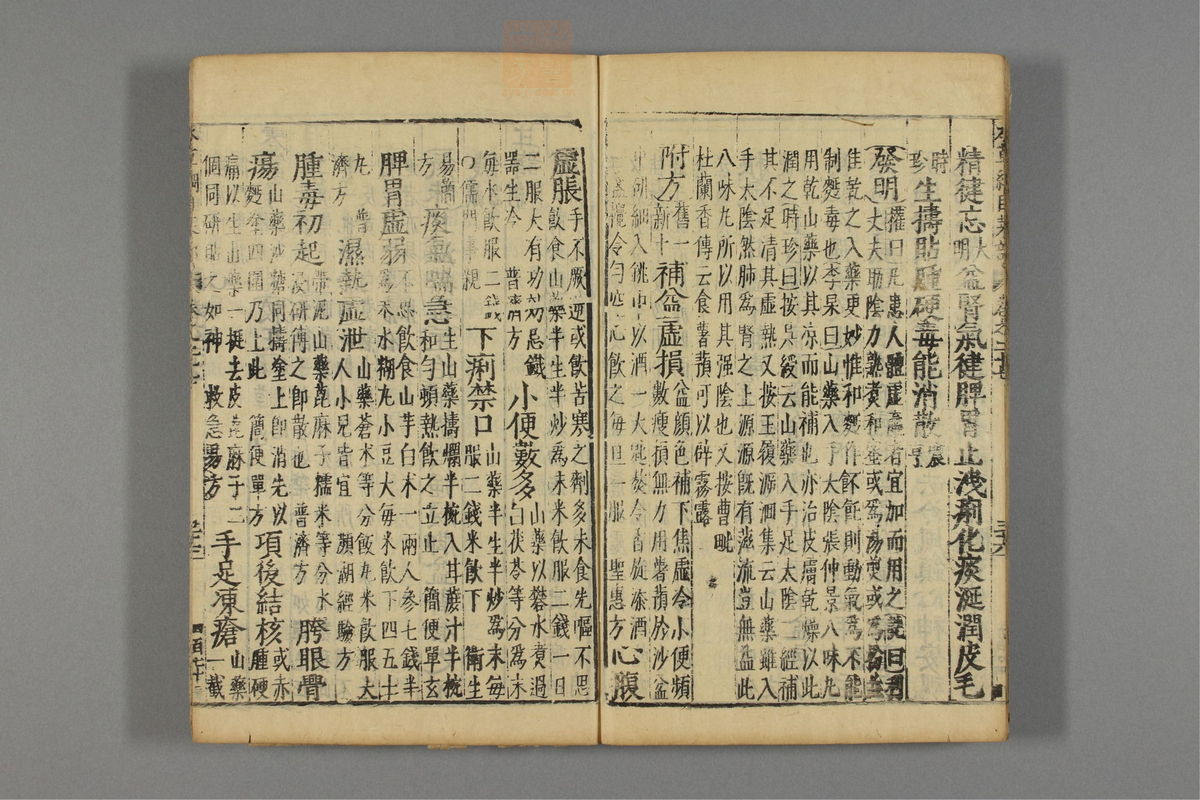 精健忘大明益腎氣健脾胃止洩痢化痰涎潤皮毛
時珍生擣貼腫硬毒能消散震亨
發明權曰凡患人體虛羸者宜加而用之詵曰利
丈夫助陰力熟煮和蜜或為湯煎或為粉並
佳乾之入藥更妙惟和麪作餺飥則動氣為不能
制麪毒也李杲曰山藥入手太陰張仲景八味丸
用乾山藥以其凉而能補也亦治皮膚乾燥以此
潤之時珍曰按吳綬云山藥入手足太陰二經補
其不足清其虛熱又按王履泝洄集云山藥雖入
手太陰然肺為腎之上源源既有滋流豈無益此
八味丸所以用其强陰也又按曹毗
杜蘭香傳云食薯蕷可以辟霧露
附方舊一新十補益虛損益顔色補下焦虛冷小便頻
數瘦損無力用薯蕷於沙盆
中研細入銚中以酒一大匙熬令香旋添酒
一盞攪令勻空心飲之每旦一服聖惠方心腹
虛脹手不厥逆或飲苦寒之劑多未食先嘔不思
飲食山藥半生半炒為末米飲服二錢一日
二服大有功効忌鐵
器生冷普濟方小便數多山藥以礬水煮過
白茯苓等分為末
每水飲服二錢
○儒門事親下痢禁口山藥半生半炒為末每
服二錢米飲下衛生
易簡
方痰氣喘急生山藥擣爛半椀入甘蔗汁半椀
和勻頓熱飲之立止簡便單玄
脾胃虛弱不思飲食山芋白朮一兩人參七錢半
為末水糊丸小豆大每米飲下四五十
丸普
濟方濕熱虛泄山藥蒼朮等分飯丸米飲服大
人小兒皆宜瀕湖經驗方
腫毒初起帶泥山藥蓖麻子糯米等分水
浸研傅之即散也普濟方胯眼臀
瘍山藥沙糖同擣塗上即消先以
麪塗四圍乃上此簡便單方項後結核或赤
腫硬
痛以生山藥一挺去皮蓖麻子二
個同研貼之如神救急易方手足凍瘡山藥
一截